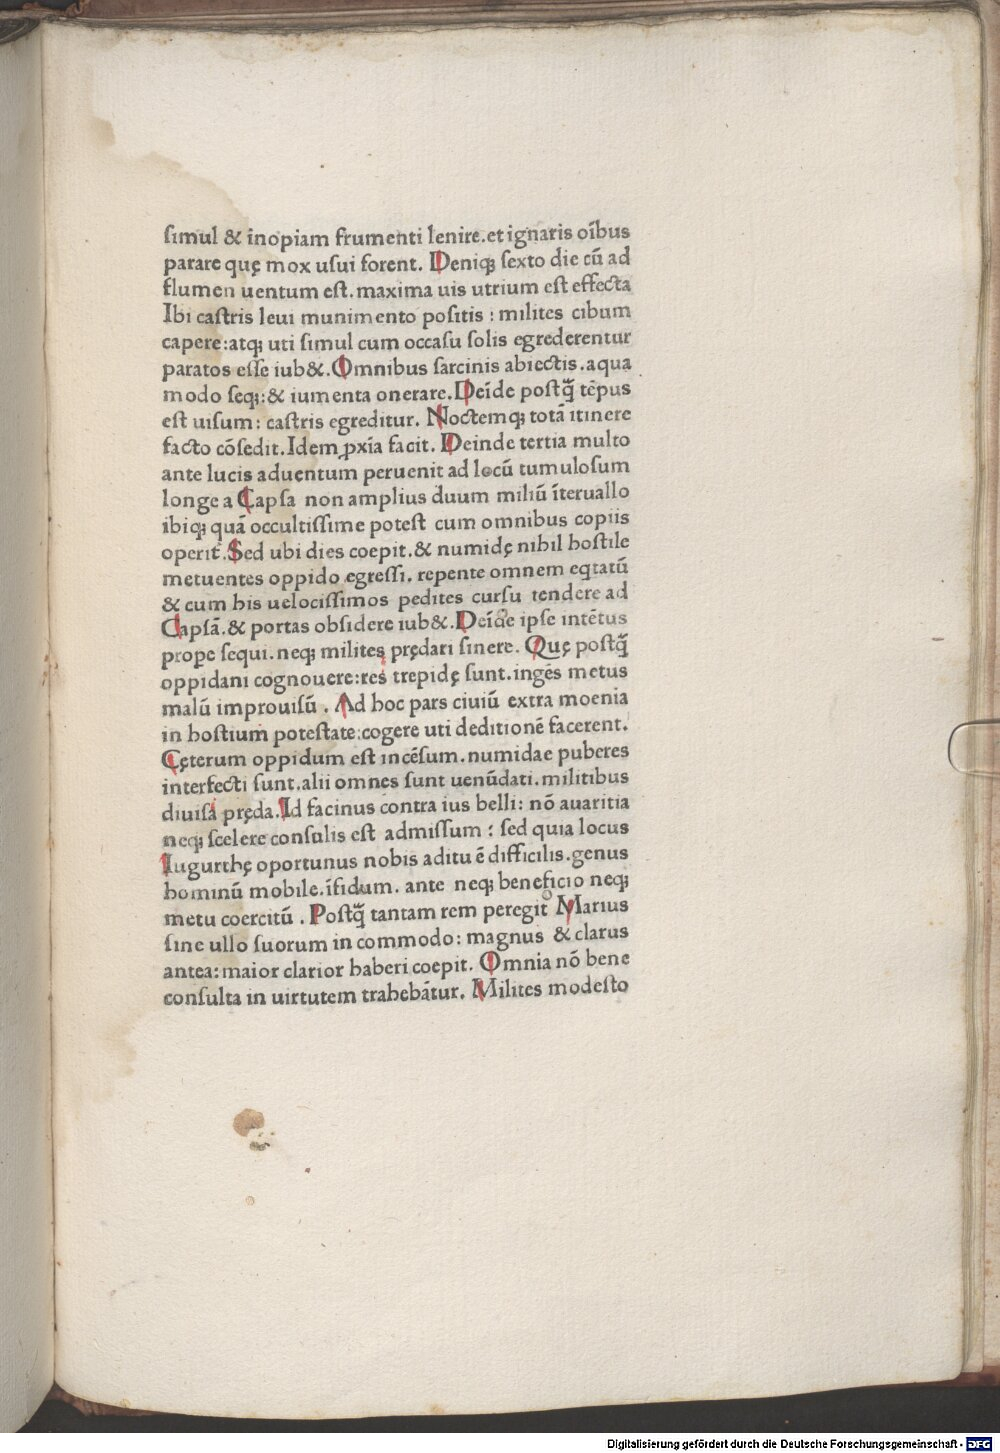 simul & inopiam frumenti lenire.et ignaris oība
parare quę mox usui forent. Deniqꝫ sexto die cū ad
flumen uentum est.maxima uis utrium est effecta
Ibi castris leui munimento positis : milites cibum
capere:atqꝫ uti simul cum occasu solis egrederentur
paratos esse iub&.Omnibus sarcinis abiectis.aqua
modo seqꝫ:& iumenta onerare.Deīde postq̄ tēpus
est uisum: castris egreditur. Noctemqꝫ totā itinere
facto cōsedit.Idem ꝓxīa facit. Deinde tertia multo
ante lucis aduentum peruenit ad locū tumulosum
longe a Capsa non amplius duum miliū īteruallo
ibiqꝫ quā occultissime potest cum omnibus copiis
operit̄.Sed ubi dies coepit.& numidę nihil hostile
metuentes oppido egressi. repente omnem eqtatū
& cum his uelocissimos pedites cursu tendere ad
Capsā.& portas obsidere iub&.Deīde ipse intētus
prope sequi.neqꝫ milites prędari sinere. Quę postq̄
oppidani cognouere:res trepidę sunt.ingēs metus
malū improuisū . Ad hoc pars ciuiū extra moenia
in hostium potestate:cogere uti deditionē facerent.
Cęterum oppidum est incēsum.numidae puberes
interfecti sunt.alii omnes sunt uenūdati.militibus
diuisa pręda.Id facinus contra ius belli: nō auaritia
neqꝫ scelere consulis est admissum : sed quia locus
Iugurthę oportunus nobis aditu ē difficilis.genus
hominū mobile.īfidum. ante neqꝫ beneficio neqꝫ
metu coercitū . Postq̄ tantam rem peregit Marius
sine ullo suorum in commodo: magnus & clarus
antea:maior clarior haberi coepit. Omnia nō bene
consulta in uirtutem trahebātur. Milites modesto
Digitalisierung gefördert durch die Deutsche Forschungsgemeinschaft - DFG